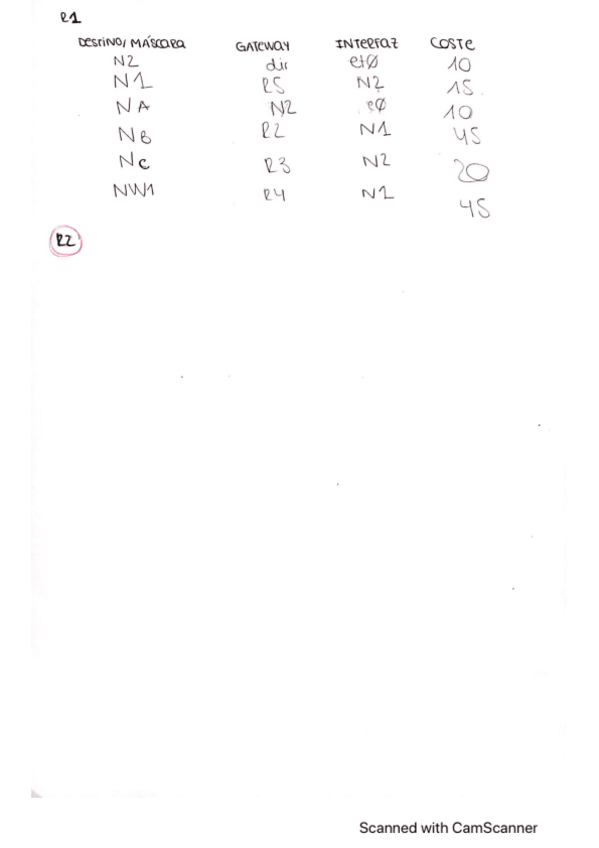 R1
DESTINO/MÁSCARA GATEWAY INTERFAZ COSTE
N2 dir et0 10
N1 R5 N2 15
NA N2 e0 10
NB R2 N1 45
NC R3 N2 20
NW1 R4 N1 45
R2
Scanned with CamScanner